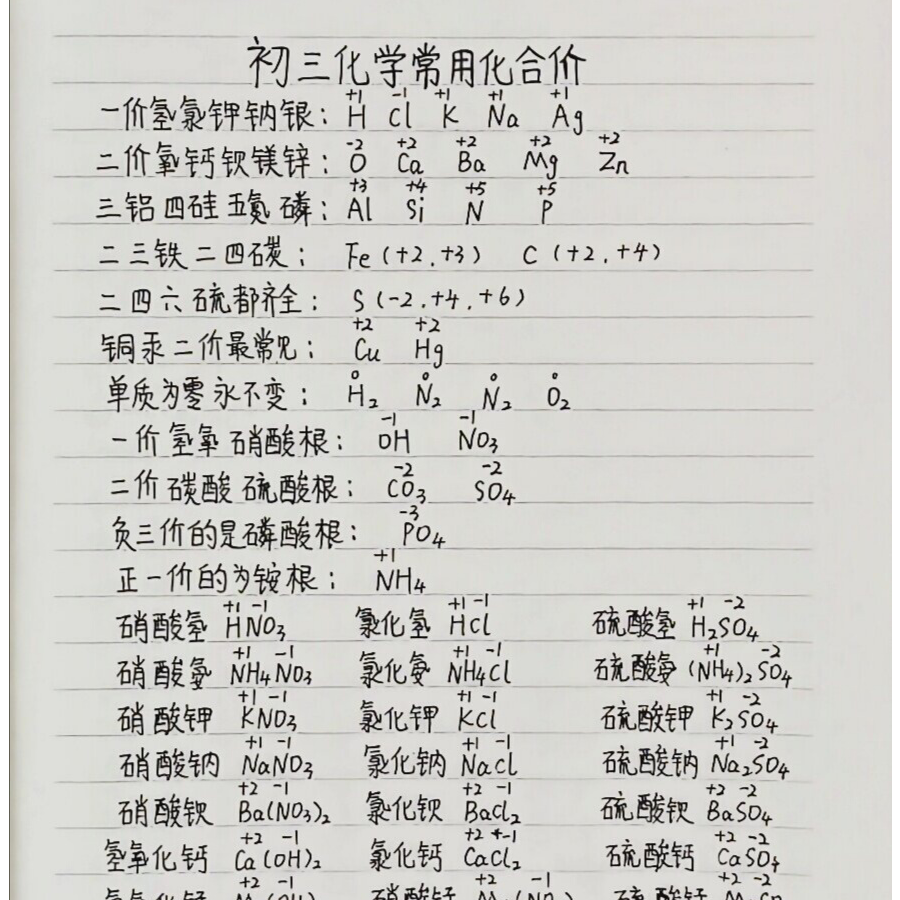 初三化学常用化合价
一价氢氯钾钠银: H⁺¹ Cl⁻¹ K⁺¹ Na⁺¹ Ag⁺¹
二价氧钙钡镁锌: O⁻² Ca⁺² Ba⁺² Mg⁺² Zn⁺²
三铝四硅五氮磷: Al⁺³ Si⁺⁴ N⁺⁵ P⁺⁵
二三铁二四碳: Fe(+2,+3) C(+2,+4)
二四六硫都齐全: S(-2,+4,+6)
铜汞二价最常见: Cu⁺² Hg⁺²
单质为零永不变: H₂⁰ N₂⁰ N₂⁰ O₂⁰
一价氢氧硝酸根: OH⁻¹ NO₃⁻¹
二价碳酸硫酸根: CO₃⁻² SO₄⁻²
负三价的是磷酸根: PO₄⁻³
正一价的为铵根: NH₄⁺¹
硝酸氢 H⁺¹NO₃⁻¹ 氯化氢 H⁺¹Cl⁻¹ 硫酸氢 H₂⁺¹SO₄⁻²
硝酸氨 NH₄⁺¹NO₃⁻¹ 氯化氨 NH₄⁺¹Cl⁻¹ 硫酸氨 (NH₄)₂⁺¹SO₄⁻²
硝酸钾 K⁺¹NO₃⁻¹ 氯化钾 K⁺¹Cl⁻¹ 硫酸钾 K₂⁺¹SO₄⁻²
硝酸钠 Na⁺¹NO₃⁻¹ 氯化钠 Na⁺¹Cl⁻¹ 硫酸钠 Na₂⁺¹SO₄⁻²
硝酸钡 Ba⁺²(NO₃)₂⁻¹ 氯化钡 Ba⁺²Cl₂⁻¹ 硫酸钡 Ba⁺²SO₄⁻²
氢氧化钙 Ca⁺²(OH)₂⁻¹ 氯化钙 Ca⁺²Cl₂⁻¹ 硫酸钙 Ca⁺²SO₄⁻²